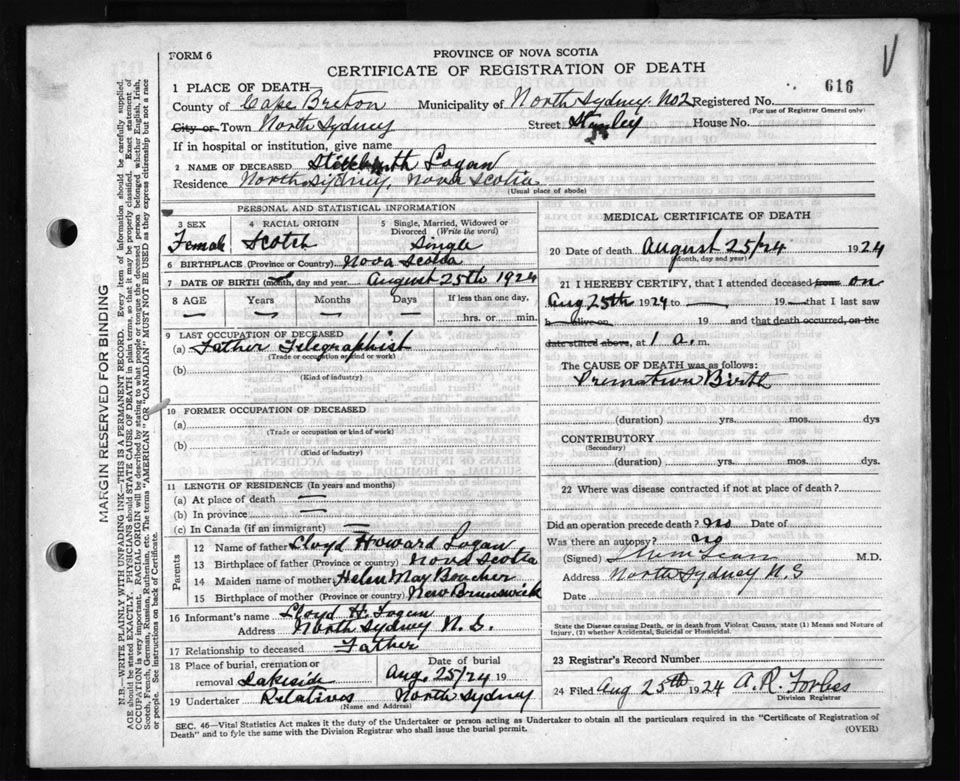 616
FORM 6
PROVINCE OF NOVA SCOTIA
CERTIFICATE OF REGISTRATION OF DEATH
1 PLACE OF DEATH
County of Cape Breton Municipality of North Sydney No2 Registered No.
(For use of Registrar General only)
City or Town North Sydney Street Stanley House No.
If in hospital or institution, give name
2 NAME OF DECEASED Stillbirth Logan
Residence North Sydney, Nova Scotia
(Usual place of abode)
PERSONAL AND STATISTICAL INFORMATION
3 SEX Female
4 RACIAL ORIGIN Scotch
5 Single, Married, Widowed or Divorced (Write the word) Single
6 BIRTHPLACE (Province or Country) Nova Scotia
7 DATE OF BIRTH (month, day and year) August 25th 1924
8 AGE Years Months Days If less than one day,
— — — — hrs. or min.
9 LAST OCCUPATION OF DECEASED
(a) Father Telegraphist
(Trade or occupation or kind of work)
(b)
(Kind of industry)
10 FORMER OCCUPATION OF DECEASED
(a)
(Trade or occupation or kind of work)
(b)
(Kind of industry)
11 LENGTH OF RESIDENCE (In years and months)
(a) At place of death —
(b) In province —
(c) In Canada (if an immigrant) —
Parents
12 Name of father Lloyd Howard Logan
13 Birthplace of father (Province or country) Nova Scotia
14 Maiden name of mother Helen May Boucher
15 Birthplace of mother (Province or country) New Brunswick
16 Informant's name Lloyd H. Logan
Address North Sydney N.S.
17 Relationship to deceased Father
18 Place of burial, cremation or removal Lakeside
Date of burial Aug. 25/24 19
19 Undertaker Relatives North Sydney
(Name and Address)
MEDICAL CERTIFICATE OF DEATH
20 Date of death August 25/24 1924
(Month, day and year)
21 I HEREBY CERTIFY, that I attended deceased from on
Aug 25th 1924 to — 19 — that I last saw
h alive on 19 and that death occurred, on the
date stated above, at 1 a. m.
The CAUSE OF DEATH was as follows:
Premature Birth
(duration) yrs. mos. dys
CONTRIBUTORY
(Secondary)
(duration) yrs. mos. dys.
22 Where was disease contracted if not at place of death?
Did an operation precede death? no Date of
Was there an autopsy? no
(Signed) M.D.
Address North Sydney N.S
Date
State the Disease causing Death, or in death from Violent Causes, state (1) Means and Nature of
Injury, (2) whether Accidental, Suicidal or Homicidal.
23 Registrar's Record Number
24 Filed Aug 25th 1924 A. R. Forbes
Division Registrar
SEC. 46—Vital Statistics Act makes it the duty of the Undertaker or person acting as Undertaker to obtain all the particulars required in the "Certificate of Registration of
Death" and to fyle the same with the Division Registrar who shall issue the burial permit. (OVER)
MARGIN RESERVED FOR BINDING
N.B.—WRITE PLAINLY WITH UNFADING INK—THIS IS A PERMANENT RECORD. Every item of information should be carefully supplied.
AGE should be stated EXACTLY. PHYSICIANS should STATE CAUSE OF DEATH in plain terms, so that it may be properly classified. Exact statement of
OCCUPATION is very important. RACIAL ORIGIN will be described by stating to what people or tongue the deceased person belonged whether English, Irish,
Scotch, French, German, Russian, Ruthenian, etc. The terms "AMERICAN" OR "CANADIAN" MUST NOT BE USED as they express citizenship but not a race
or people. See instructions on back of Certificate.